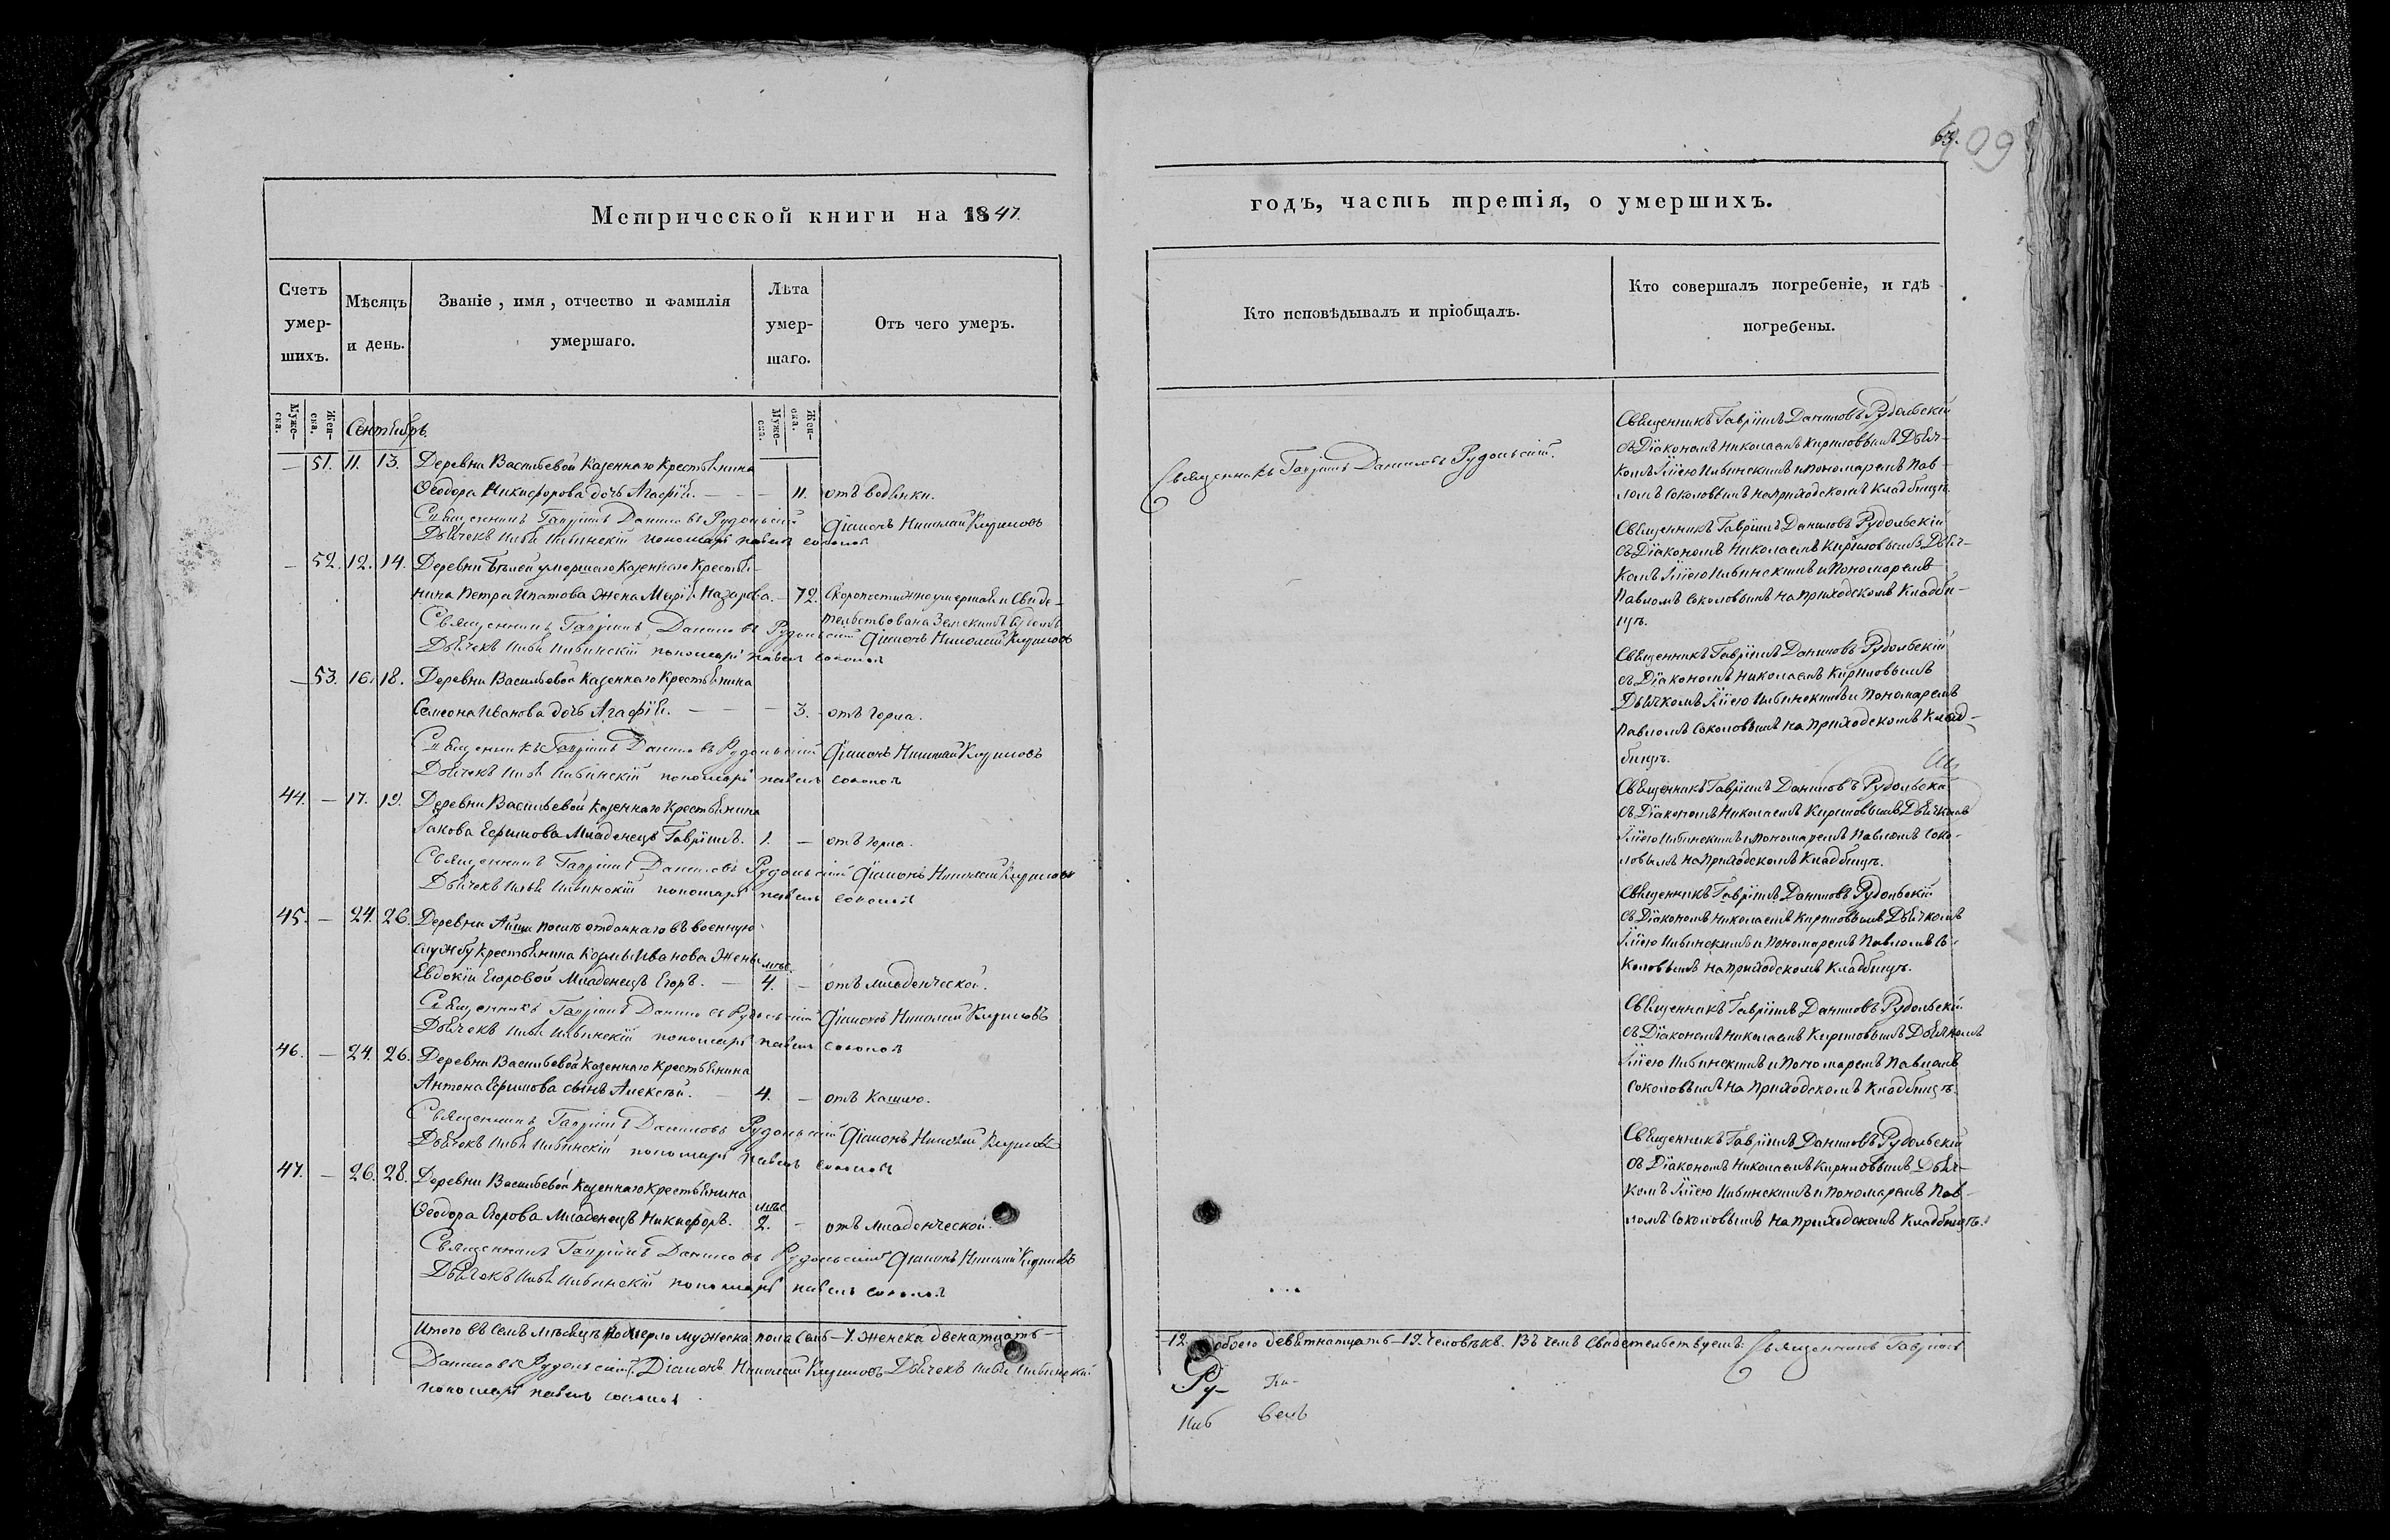 63.
409
Метрической книги на 1847.
годъ, часть третія, о умершихъ.
Счетъ умер-шихъ.
Мѣсяцъ и день.
Званіе, имя, отчество и фамилія умершаго.
Лѣта умер-шаго.
Отъ чего умеръ.
Кто исповѣдывалъ и пріобщалъ.
Кто совершалъ погребеніе, и гдѣ погребены.
Муже-ска.
Жен-ска.
Муже-ска.
Жен-ска.
Сентябрь.
— 51. 11. 13. Деревни Васильевой Казеннаго Крестьянина
Ѳеодора Никифорова дочь Агафія. — — — 11. отъ водянки.
Священникъ Гавріилъ Даниловъ Рудольскій Діаконъ Николай Кириловъ
Дьячекъ Илья Ильинскій пономарь павелъ соколов
— 52. 12. 14. Деревни умершаго Казеннаго Крестья-
нина Петра Ипатова жена Марія Назарова. — 72. Скоропостижно умершая и Свиде-
тельствована Земскимъ Судомъ
Священникъ Гавріилъ Даниловъ Рудольскій Діаконъ Николай Кириловъ
Дьячекъ Илья Ильинскій пономарь павелъ соколов
— 53. 16. 18. Деревни Васильевой Казеннаго Крестьянина
Семеона Иванова дочь Агафія. — — — 3. отъ горла.
Священникъ Гавріилъ Даниловъ Рудольскій Діаконъ Николай Кириловъ
Дьячекъ Илья Ильинскій пономарь павелъ соколов
44. — 17. 19. Деревни Васильевой Казеннаго Крестьянина
Іакова Ефимова Младенецъ Гавріилъ. 1. — отъ горла.
Священникъ Гавріилъ Даниловъ Рудольскій Діаконъ Николай Кириловъ
Дьячекъ Илья Ильинскій пономарь павелъ соколов
45. — 24. 26. Деревни отданнаго въ военную
службу крестьянина Козмы Иванова жены
мѣс.
Евдокіи Егоровой Младенецъ Егоръ. — 4. — отъ младенческой.
Священникъ Гавріилъ Даниловъ Рудольскій Діаконъ Николай Кириловъ
Дьячекъ Илья Ильинскій пономарь павелъ соколов
46. — 24. 26. Деревни Васильевой Казеннаго Крестьянина
Антона Ефимова сынъ Алексѣй. — 4. — отъ Кашлю.
Священникъ Гавріилъ Даниловъ Рудольскій Діаконъ Николай Кириловъ
Дьячекъ Илья Ильинскій пономарь павелъ соколов
47. — 26. 28. Деревни Васильевой Казеннаго Крестьянина
мѣс.
Ѳеодора Егорова Младенецъ Никифоръ. 2. — отъ младенческой.
Священникъ Гавріилъ Даниловъ Рудольскій Діаконъ Николай Кириловъ
Дьячекъ Илья Ильинскій пономарь павелъ соколов
Итого въ семъ мѣсяцѣ померло мужеска пола семь — 7. женска двенатцать —
Даниловъ Рудольскій. Діаконъ Николай Кириловъ Дьячекъ Илья Ильинскій
пономарь павелъ соколов
Священникъ Гавріилъ Даниловъ Рудольскій.
Священникъ Гавріилъ Даниловъ Рудольскій
съ Діакономъ Николаемъ Кириловымъ Дьяч-
комъ Иліею Ильинскимъ и Пономаремъ Пав-
ломъ Соколовымъ на приходскомъ Кладбищѣ.
Священникъ Гавріилъ Даниловъ Рудольскій
съ Діакономъ Николаемъ Кириловымъ Дьяч-
комъ Иліею Ильинскимъ и Пономаремъ
Павломъ Соколовымъ на приходскомъ Кладби-
щѣ.
Священникъ Гавріилъ Даниловъ Рудольскій
съ Діакономъ Николаемъ Кириловымъ
Дьячкомъ Иліею Ильинскимъ и Пономаремъ
Павломъ Соколовымъ на приходскомъ Клад-
бищѣ.
Священникъ Гавріилъ Даниловъ Рудольскій
съ Діакономъ Николаемъ Кириловымъ Дьячкомъ
Иліею Ильинскимъ и Пономаремъ Павломъ Соко-
ловымъ на приходскомъ Кладбищѣ.
Священникъ Гавріилъ Даниловъ Рудольскій
съ Діакономъ Николаемъ Кириловымъ Дьячкомъ
Иліею Ильинскимъ и Пономаремъ Павломъ Со-
коловымъ на приходскомъ Кладбищѣ.
Священникъ Гавріилъ Даниловъ Рудольскій
съ Діакономъ Николаемъ Кириловымъ Дьячкомъ
Иліею Ильинскимъ и Пономаремъ Павломъ
Соколовымъ на Приходскомъ Кладбищѣ.
Священникъ Гавріилъ Даниловъ Рудольскій
съ Діакономъ Николаемъ Кириловымъ Дьяч-
комъ Иліею Ильинскимъ и Пономаремъ Пав-
ломъ Соколовымъ на приходскомъ Кладбищѣ.
— 12. обоего девятнатцать — 19. человѣкъ. Въ чемъ Свидетельствуемъ: Священникъ Гавріилъ
Ру- Ки-
Иль велъ